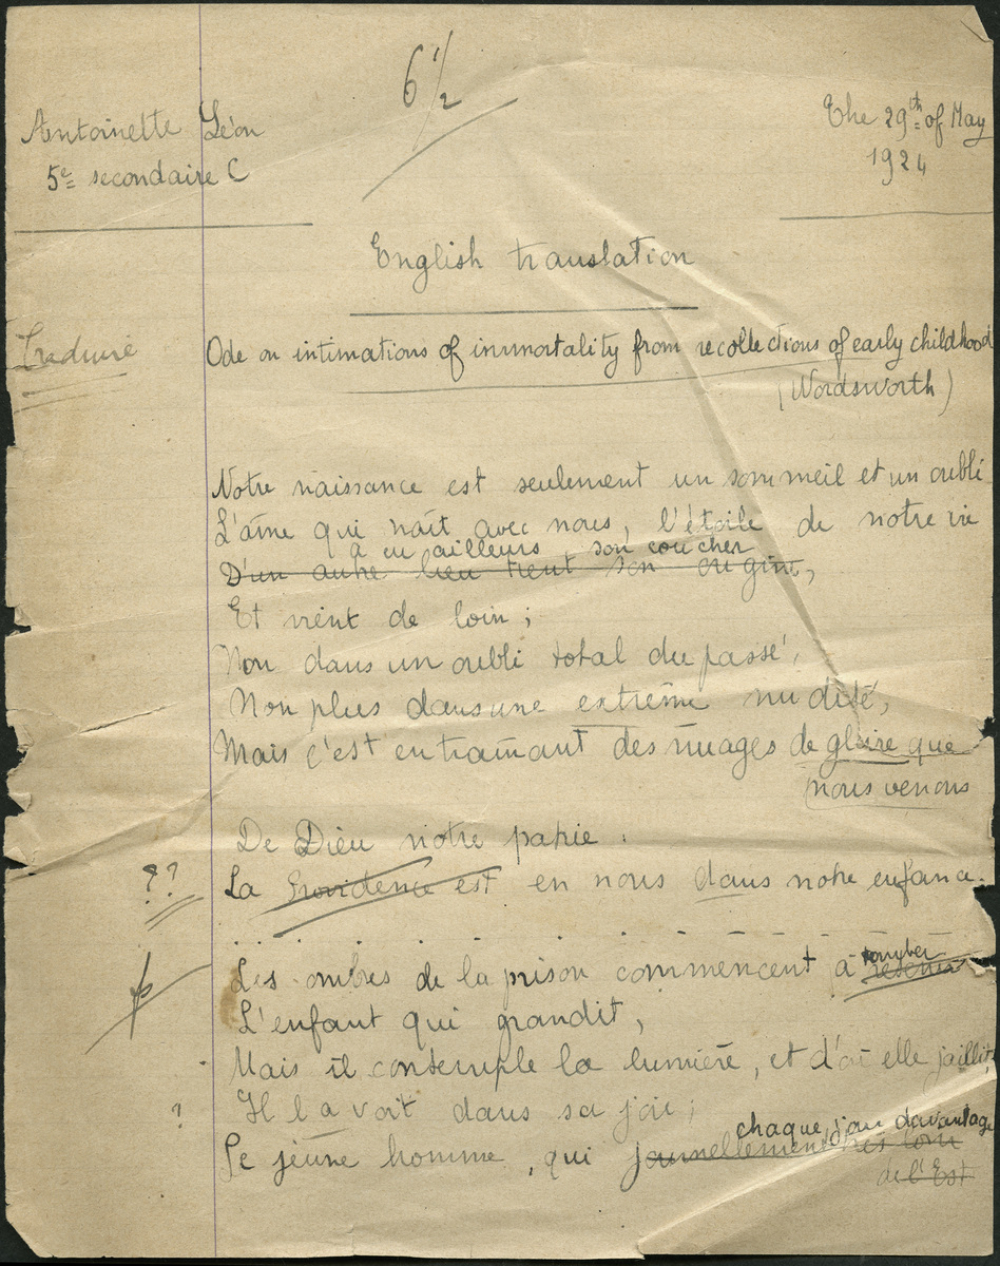 6 1/2
Antoinette Léon
The 29th of May
5e secondaire C
1924
English translation
Traduire
Ode on intimations of immortality from recollections of early childhood
(Wordsworth)
Notre naissance est seulement un sommeil et un oubli
L'âme qui naît avec nous, l'étoile de notre vie
a eu ailleurs son coucher
D'un autre lieu tient son origine,
Et vient de loin ;
Non dans un oubli total du passé,
Non plus dans une extrême nudité,
Mais c'est en traînant des nuages de gloire que
nous venons
De Dieu notre patrie.
?? La Providence est en nous dans notre enfance.
tomber
Les ombres de la prison commencent à
L'enfant qui grandit,
Mais il contemple la lumière, et d'où elle jaillit,
? Il la voit dans sa joie ;
chaque jour davantage
Le jeune homme, qui journellement très loin
de l'Est